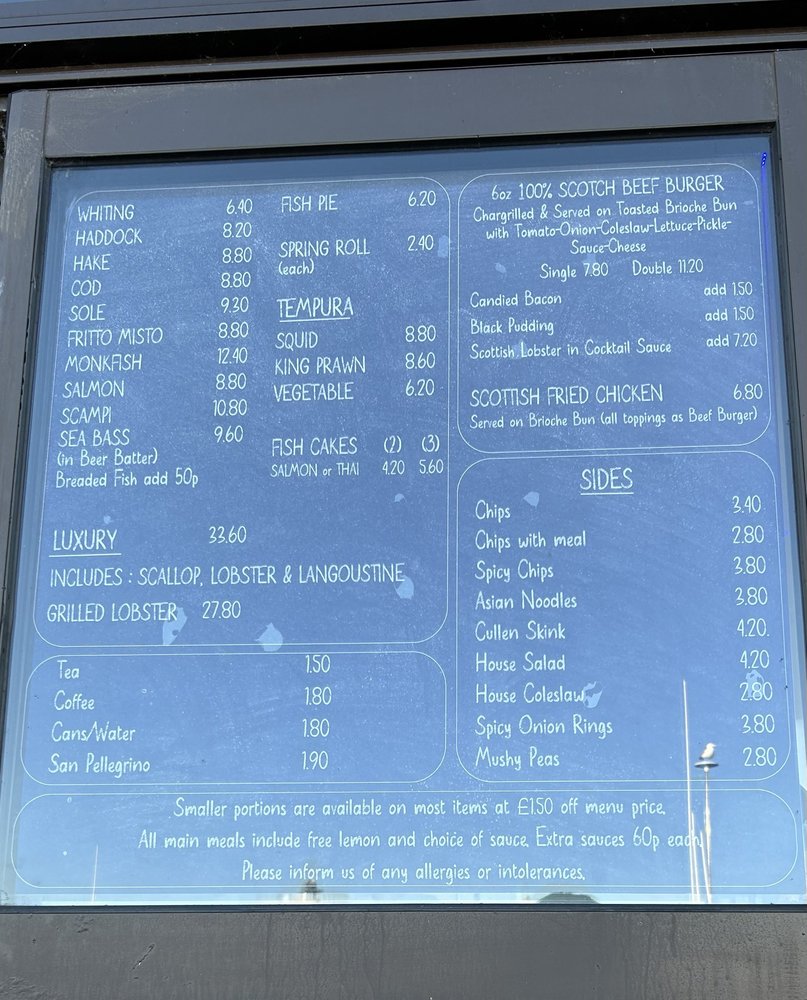 WHITING 6.40
HADDOCK 8.20
HAKE 8.80
COD 8.80
SOLE 9.30
FRITTO MISTO 8.80
MONKFISH 12.40
SALMON 8.80
SCAMPI 10.80
SEA BASS 9.60
(in Beer Batter)
Breaded Fish add 50p
FISH PIE 6.20
SPRING ROLL 2.40
(each)
TEMPURA
SQUID 8.80
KING PRAWN 8.60
VEGETABLE 6.20
FISH CAKES (2) (3)
SALMON or THAI 4.20 5.60
LUXURY 33.60
INCLUDES : SCALLOP, LOBSTER & LANGOUSTINE
GRILLED LOBSTER 27.80
Tea 1.50
Coffee 1.80
Cans/Water 1.80
San Pellegrino 1.90
6oz 100% SCOTCH BEEF BURGER
Chargrilled & Served on Toasted Brioche Bun
with Tomato-Onion-Coleslaw-Lettuce-Pickle-
Sauce-Cheese
Single 7.80 Double 11.20
Candied Bacon add 1.50
Black Pudding add 1.50
Scottish Lobster in Cocktail Sauce add 7.20
SCOTTISH FRIED CHICKEN 6.80
Served on Brioche Bun (all toppings as Beef Burger)
SIDES
Chips 3.40
Chips with meal 2.80
Spicy Chips 3.80
Asian Noodles 3.80
Cullen Skink 4.20.
House Salad 4.20
House Coleslaw 2.80
Spicy Onion Rings 3.80
Mushy Peas 2.80
Smaller portions are available on most items at £1.50 off menu price.
All main meals include free lemon and choice of sauce. Extra sauces 60p each
Please inform us of any allergies or intolerances.